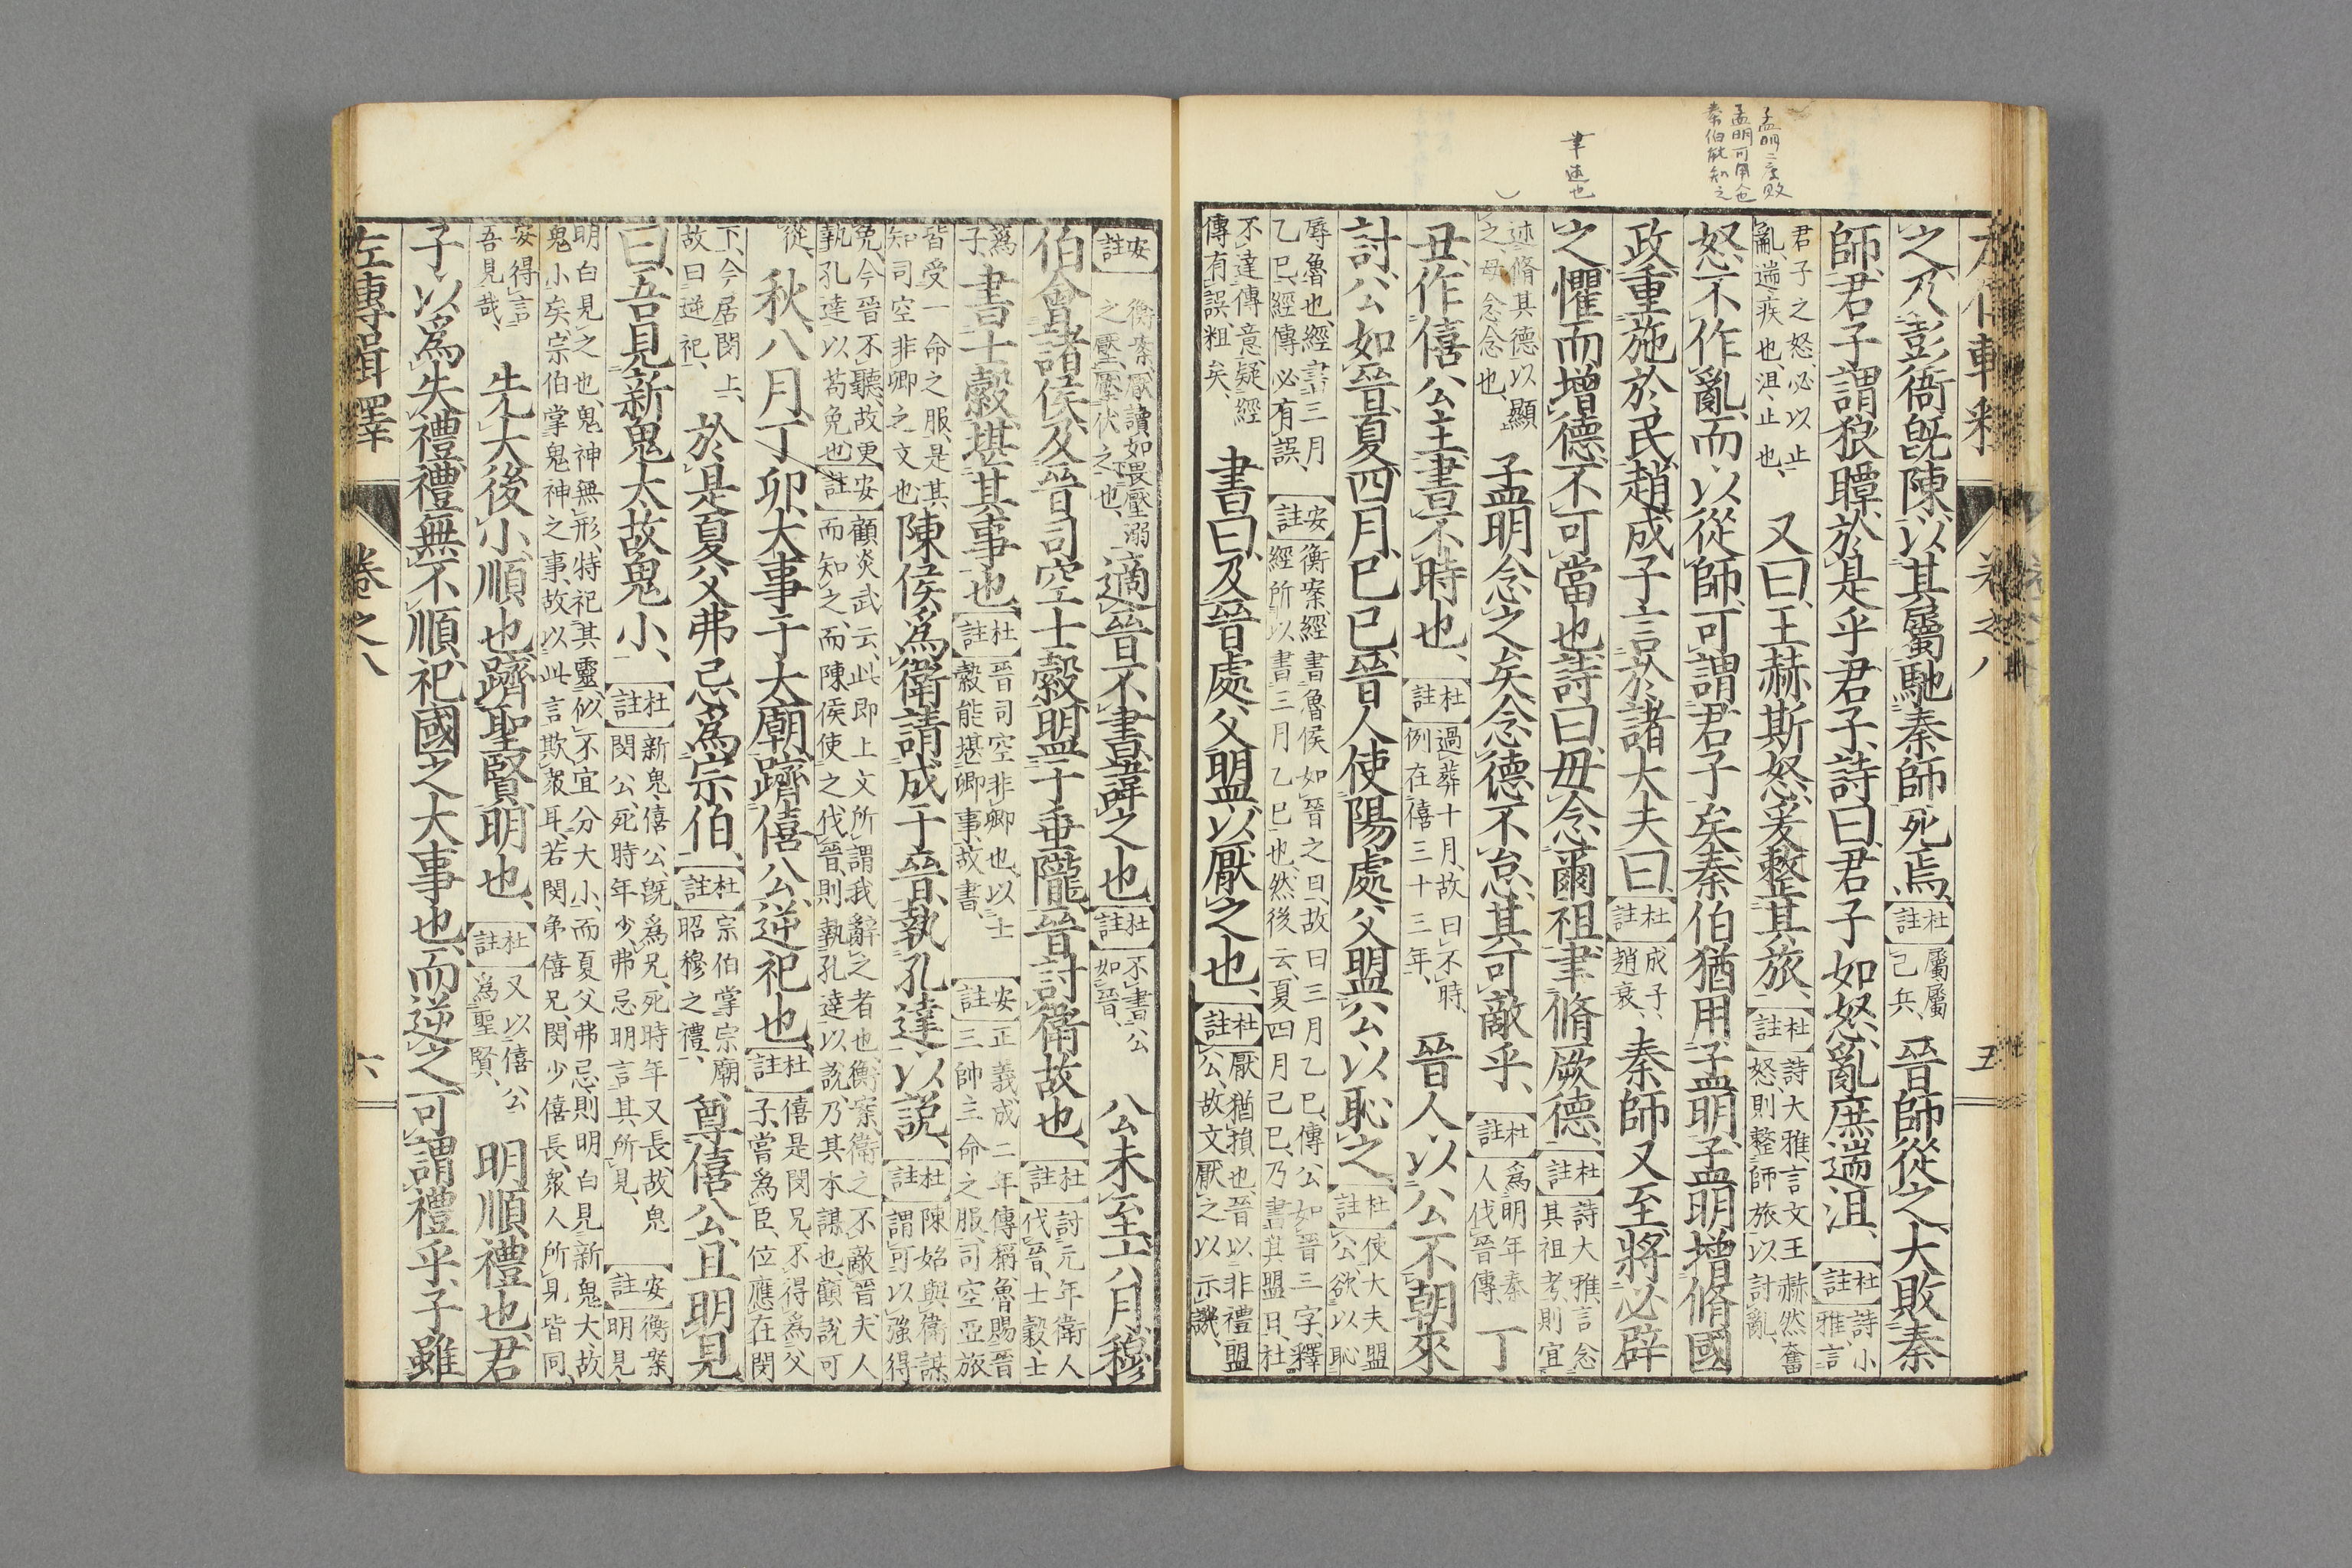 孟明二度敗
孟明可用也
秦伯能知之
聿述也
之、及彭衙既陳、以其屬馳秦師死焉、杜註屬屬己兵、晉師從之、大敗秦
師、君子謂狼瞫於是乎君子、詩曰、君子如怒、亂庶遄沮、杜註詩小雅、言
君子之怒、必以止亂、遄疾也、沮、止也、又曰、王赫斯怒、爰整其旅、杜註詩大雅、言文王赫然奮怒、則整師旅以討亂、
怒不作亂、而以從師、可謂君子矣、秦伯猶用孟明、孟明增脩國
政、重施於民、趙成子言於諸大夫曰、杜註成子、趙衰、秦師又至、將必辟
之、懼而增德、不可當也、詩曰、毋念爾祖、聿脩厥德、杜註詩大雅、言念其祖考、則宜
述脩其德以顯之、毋念念也、孟明念之矣、念德不怠、其可敵乎、杜註爲明年秦人伐晉傳、丁
丑、作僖公主、書不時也、杜註過葬十月、故曰不時、例在僖三十三年、晉人以公不朝來
討、公如晉、夏四月、己巳、晉人使陽處父盟公以恥之、杜註使大夫盟公、欲以恥
辱魯也、經書三月乙巳、經傳必有誤、安註衡案、經書魯侯如晉之日、故曰三月乙巳、傳公如晉三字、釋經所以書三月乙巳也、然後云、夏四月己巳、乃書其盟日、杜
不達傳意、疑經傳有誤、粗矣、書曰、及晉處父盟、以厭之也、杜註厭、猶損也、晉以非禮盟公、故文厭之以示譏、
安註衡案、厭讀如畏壓溺之壓、壓伏之也、適晉不書、諱之也、杜註不書公如晉、公未至、六月、穆
伯會諸侯及晉司空士縠盟于垂隴、晉討衞故也、杜註討元年衞人伐晉、士縠、士
爲子、書士縠、堪其事也、杜註晉司空非卿也、以士縠能堪卿事、故書、安註正義、成二年傳稱、魯賜晉三帥三命之服、司空亞旅
皆受一命之服、是其知司空非卿之文也、陳侯爲衞請成于晉、執孔達以説、杜註陳始與衞謀、謂可以強得
免、今晉不聽、故更執孔達以苟免也、安註顧炎武云、此即上文所謂我辭之者也、衡案、衞之不敵晉、夫人而知之、而陳侯使之伐晉、則執孔達以説、乃其本謀也、顧説可
從、秋、八月、丁卯、大事于大廟、躋僖公、逆祀也、杜註僖是閔兄、不得爲父子、嘗爲臣、位應在閔
下、今居閔上、故曰逆祀、於是夏父弗忌爲宗伯、杜註宗伯掌宗廟昭穆之禮、尊僖公、且明見
曰、吾見新鬼大、故鬼小、杜註新鬼、僖公、既爲兄、死時年又長、故鬼閔公、死時年少、弗忌明言其所見、安註衡案明見
明白見之也、鬼神無形、特祀其靈、似不宜分大小、而夏父弗忌則明白見新鬼大故鬼小矣、宗伯掌鬼神之事、故以此言欺衆耳、若閔弟僖兄、閔少僖長、衆人所見皆同、
安得言吾見哉、先大後小、順也、躋聖賢、明也、杜註又以僖公爲聖賢、明順、禮也、君
子以爲失禮、禮無不順、祀、國之大事也、而逆之、可謂禮乎、子雖
左傳輯釋 卷之八 六